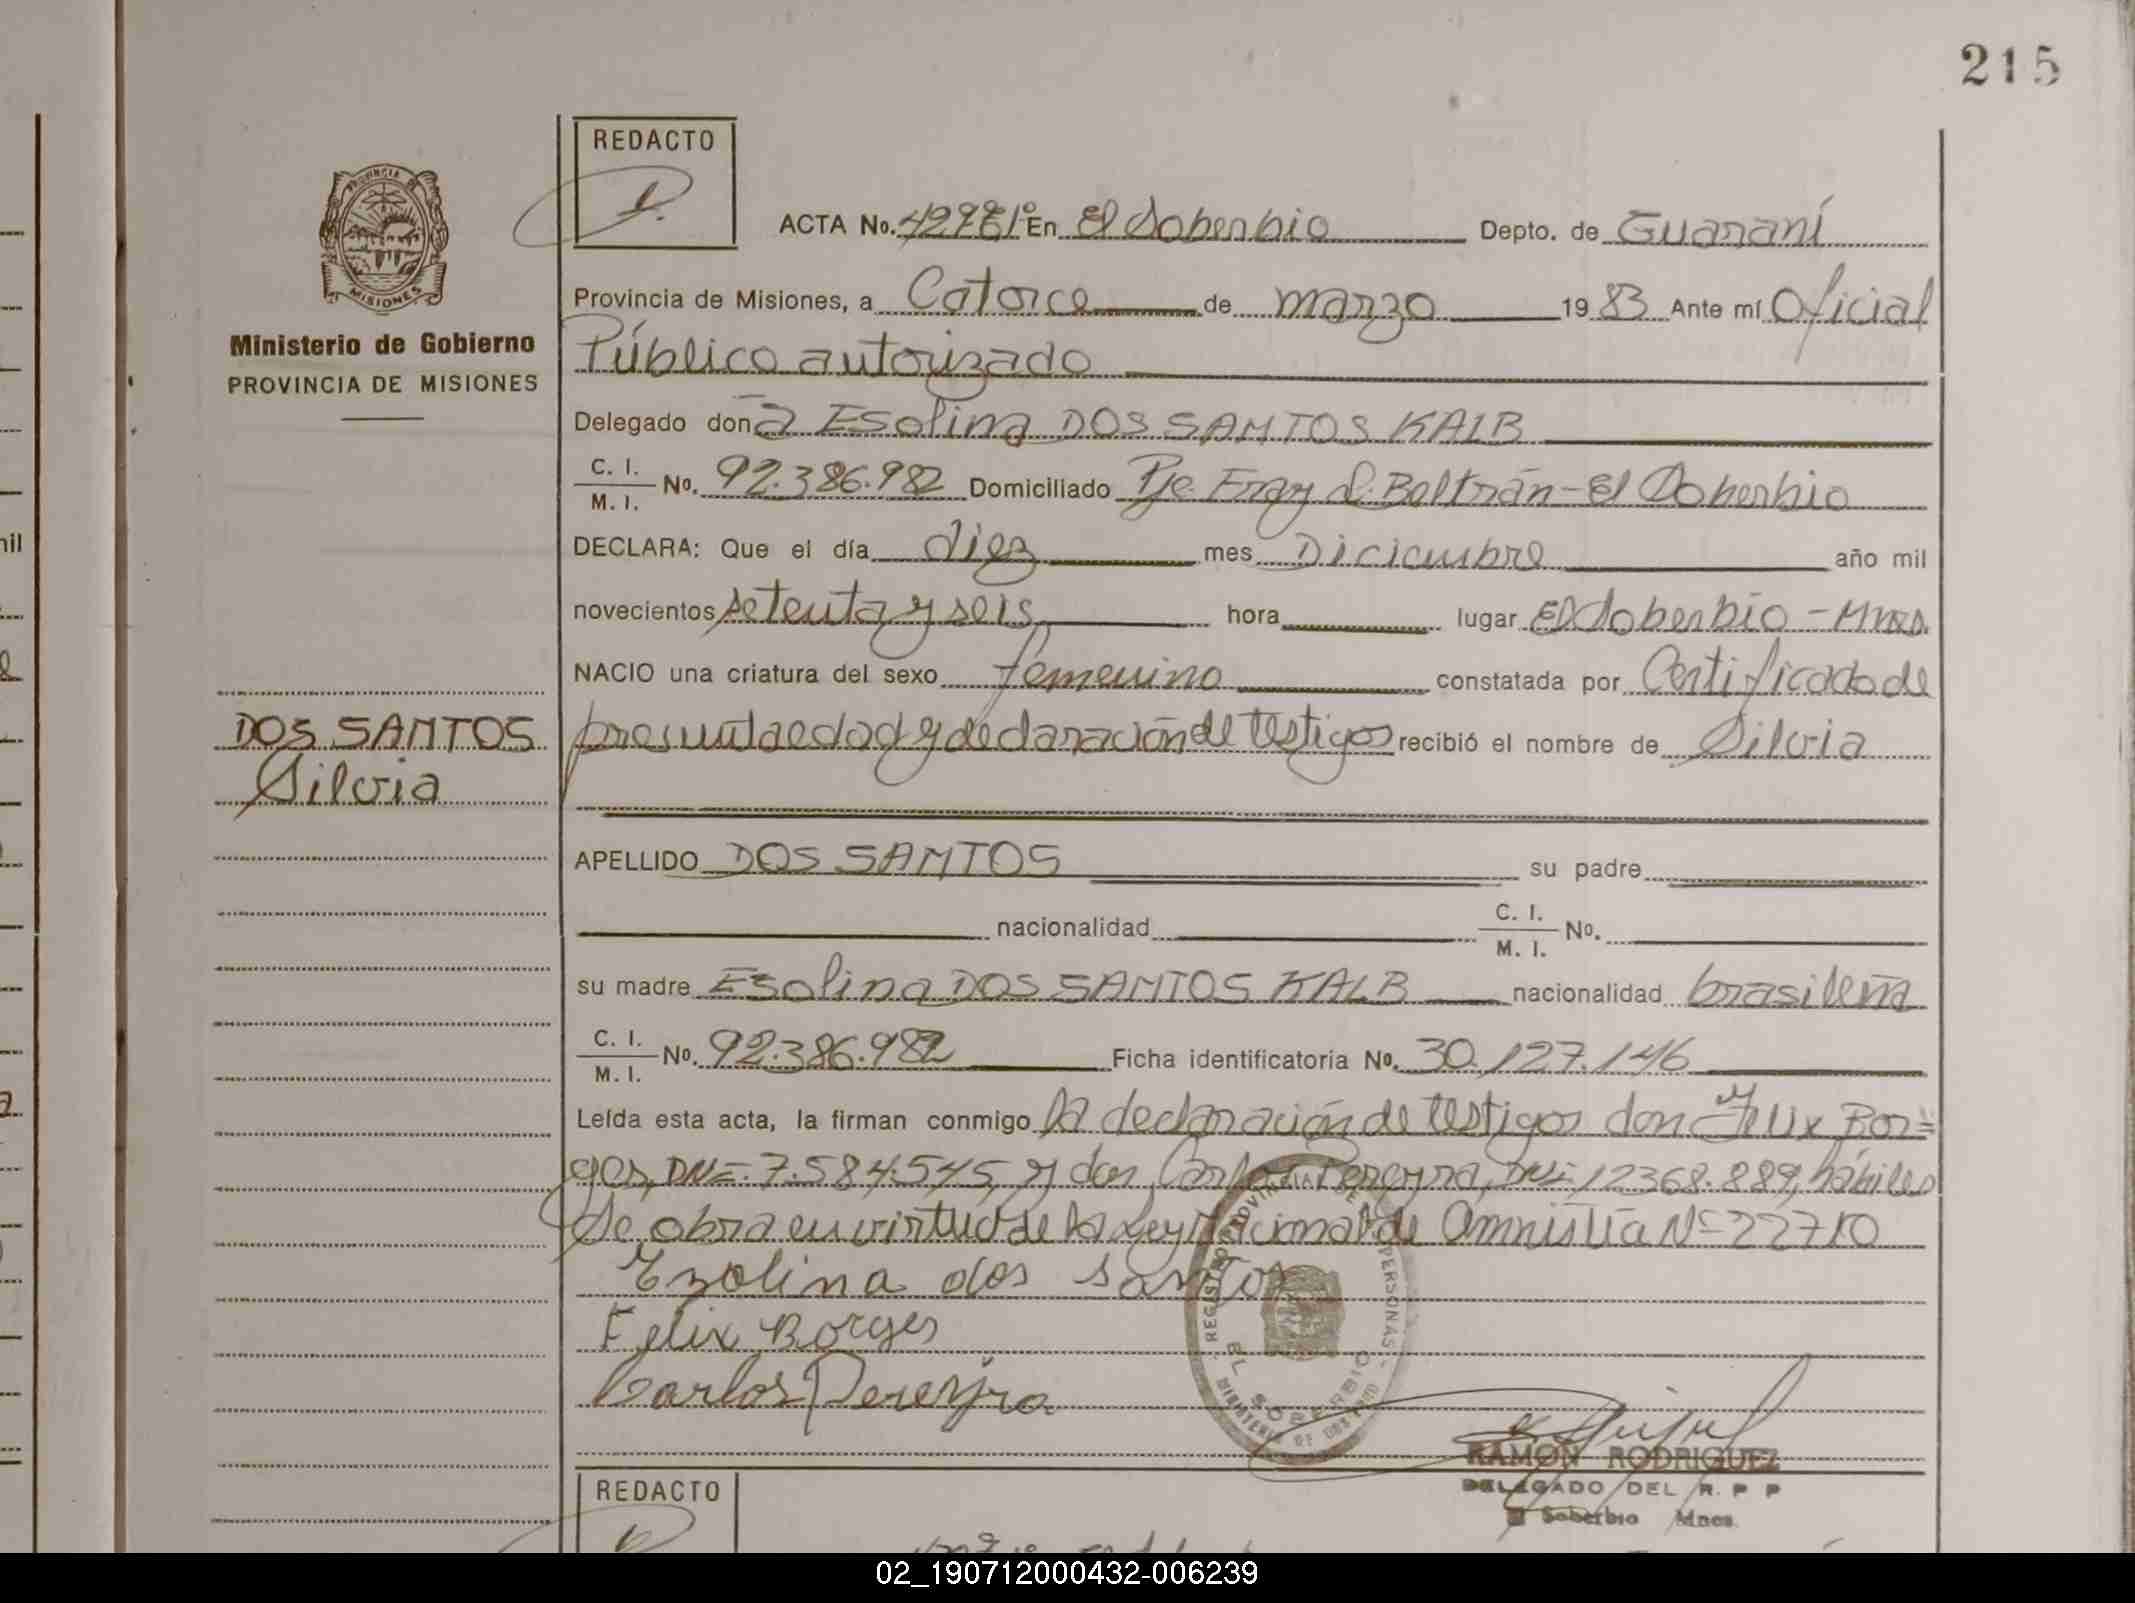 215
REDACTO
ACTA No. En El Soberbio Depto. de Guaraní
Provincia de Misiones, a Catorce de marzo 1983 Ante mí Oficial
Público autorizado
Ministerio de Gobierno
PROVINCIA DE MISIONES
Delegado don a ESolina DOS SANTOS KALB
C. I. M. I. No. 92.386.982 Domiciliado Pje. Fray L. Beltrán - El Soberbio
DECLARA: Que el día diez mes Diciembre año mil
novecientos setenta y seis hora lugar El Soberbio - Mnes.
NACIO una criatura del sexo femenino constatada por Certificado de
presunta edad y declaración de testigos recibió el nombre de Silvia
DOS SANTOS
Silvia
APELLIDO DOS SANTOS su padre
nacionalidad C. I. M. I. No.
su madre ESolina DOS SANTOS KALB nacionalidad brasileña
C. I. M. I. No. 92.386.982 Ficha identificatoria No. 30.127.146
Leída esta acta, la firman conmigo la declaración de testigos don Felix Bor=
ges, DNI=. 7.584.545, y don Carlos Pereyra, DNI= 12368.889, hábiles
Se obra en virtud de la Ley Nacional de Amnistía N= 22710
Ezolina dos santos
Felix Borges
Carlos Pereyra
REGISTRO PROVINCIAL DE PERSONAS
EL SOBERBIO
RAMON RODRIGUEZ
DELEGADO DEL R. P P
El Soberbio Mnes.
REDACTO
02_190712000432-006239